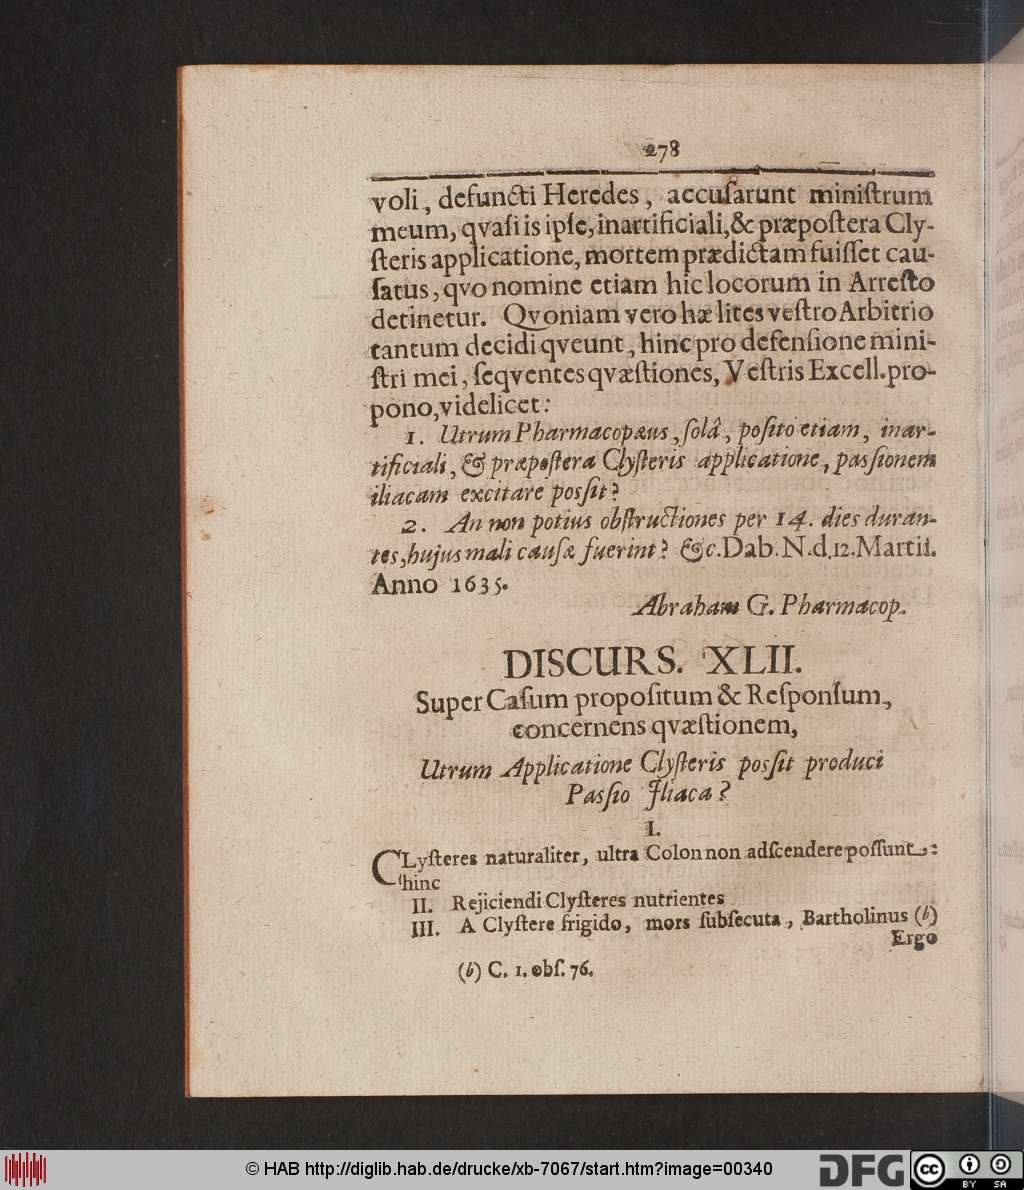 278
voli, defuncti Heredes, accuſarunt miniſtrum
meum, qvaſi is ipſe, inartificiali, & præpoſtera Cly-
ſteris applicatione, mortem prædictam fuiſſet cau-
ſatus, qvo nomine etiam hic locorum in Arreſto
detinetur. Qvoniam vero hæ lites veſtro Arbitrio
tantum decidi qveunt, hinc pro defenſione mini-
ſtri mei, ſeqventes qvæſtiones, Veſtris Excell. pro-
pono, videlicet:
1. Utrum Pharmacopæus, ſolâ, poſito etiam, inar-
tificiali, & præpoſtera Clyſteris applicatione, paſsionem
iliacam excitare poſsit?
2. An non potius obſtructiones per 14. dies duran-
tes, hujus mali cauſæ fuerint? &c. Dab. N. d. 12. Martii.
Anno 1635.
Abraham G. Pharmacop.
DISCURS. XLII.
Super Caſum propoſitum & Reſponſum,
concernens qvæſtionem,
Utrum Applicatione Clyſteris poſsit produci
Paſsio Iliaca?
I.
CLyſteres naturaliter, ultra Colon non adſcendere poſſunt:
hinc
II. Rejiciendi Clyſteres nutrientes
III. A Clyſtere frigido, mors ſubſecuta, Bartholinus (b)
Ergo
(b) C. 1. obſ. 76.
© HAB http://diglib.hab.de/drucke/xb-7067/start.htm?image=00340
DFG
cc
BY SA